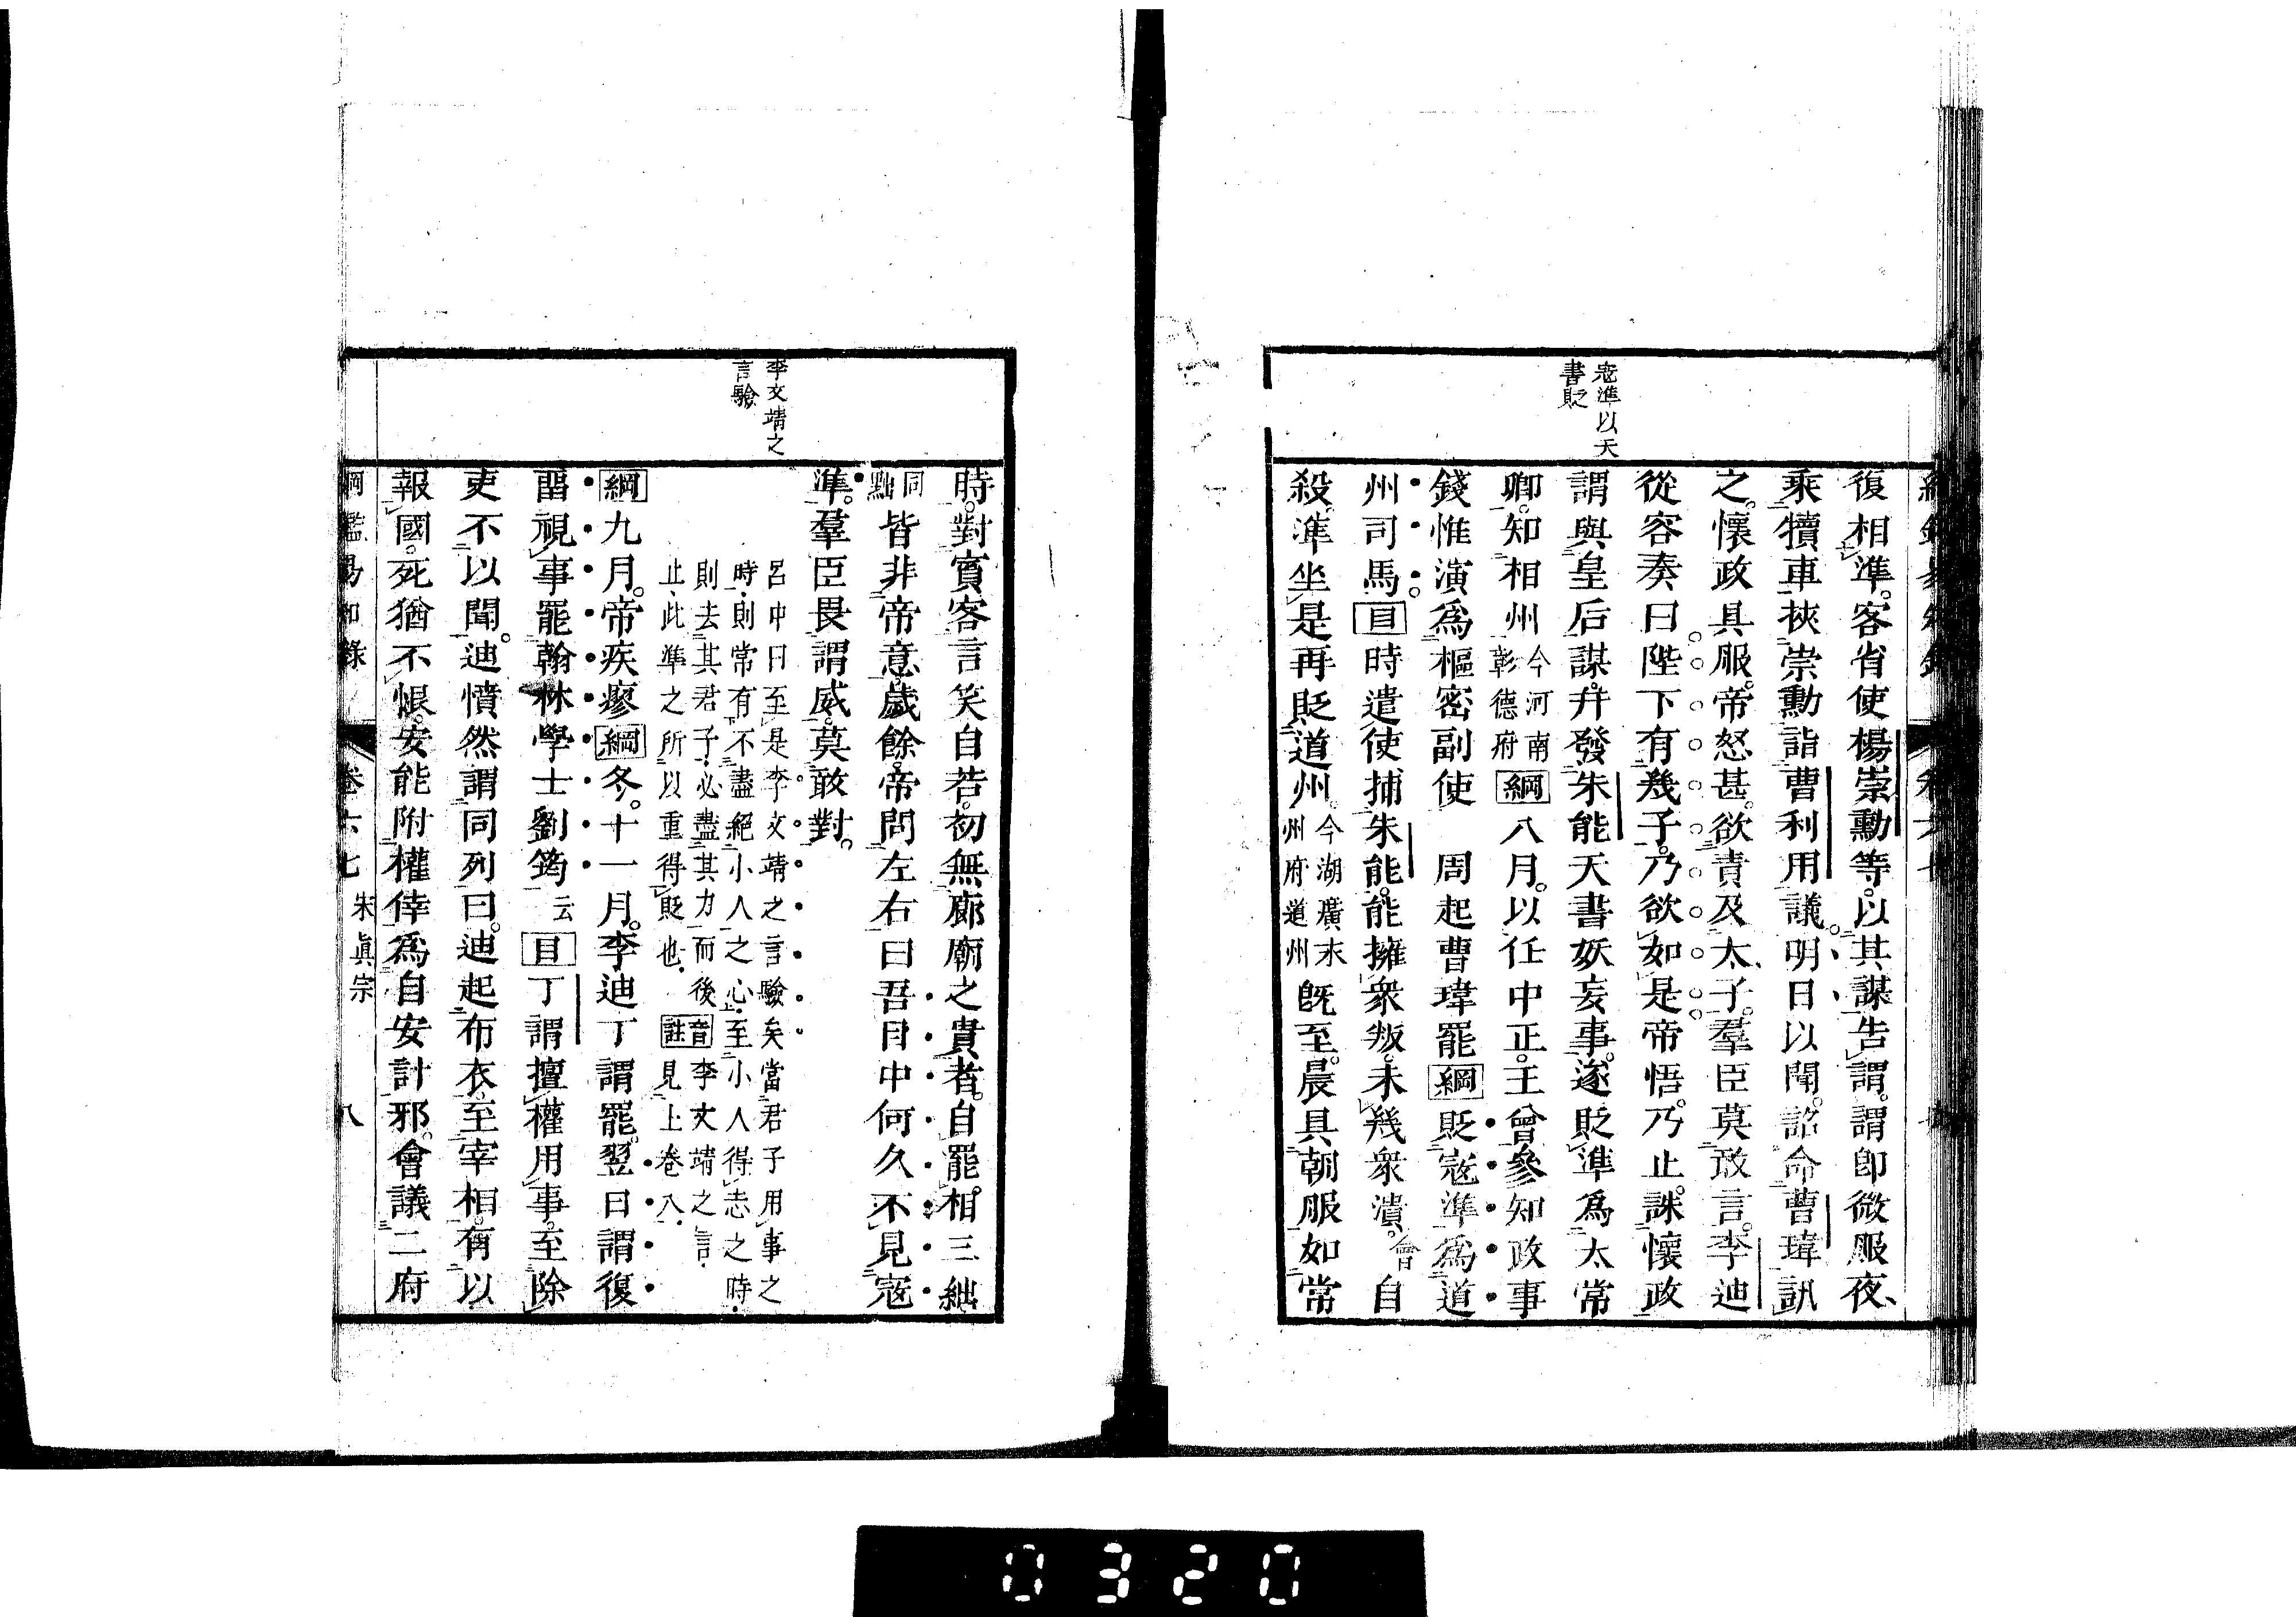 復相準。客省使楊崇勳等。以其謀告謂。謂卽微服夜、
乘犢車。挾崇勳詣曹利用議。明日以聞。詔命曹瑋訊
之。懷政具服。帝怒甚。欲責及太子。羣臣莫敢言。李迪
從容奏曰。陛下有幾子。乃欲如是。帝悟。乃止。誅懷政
寇準以天
書貶
謂與皇后謀。幷發朱能天書妖妄事。遂貶準爲太常
卿。知相州 今河南彰德府 綱 八月。以任中正。王曾參知政事
錢惟演爲樞密副使 周起曹瑋罷 綱 貶寇準爲道
州司馬。 目 時遣使捕朱能。能擁衆叛。未幾衆潰。會自
殺。準坐是再貶道州。 今湖廣永州府道州 旣至。晨具朝服如常
時。對賓客言笑自若。初無廊廟之貴者。自罷相三絀
同黜 皆非帝意。歲餘。帝問左右曰吾目中何久不見寇
準。羣臣畏謂威。莫敢對。
李文靖之
言驗
呂中曰至是李文靖之言驗矣。當君子用事之
時。則常有不盡絕小人之心。至小人得志之時。
則去其君子。必盡其力而後 音註 李文靖之言。
止。此準之所以重得貶也。 見上卷八。
綱 九月。帝疾瘳 綱 冬。十一月。李迪丁謂罷。翌日謂復
畱視事罷翰林學士劉筠 云 目 丁謂擅權用事。至除
吏不以聞。迪憤然謂同列曰。迪起布衣。至宰相。有以
報國。死猶不恨。安能附權倖爲自安計邪。會議二府
綱鑑易知錄 卷六七 宋眞宗 八
0320